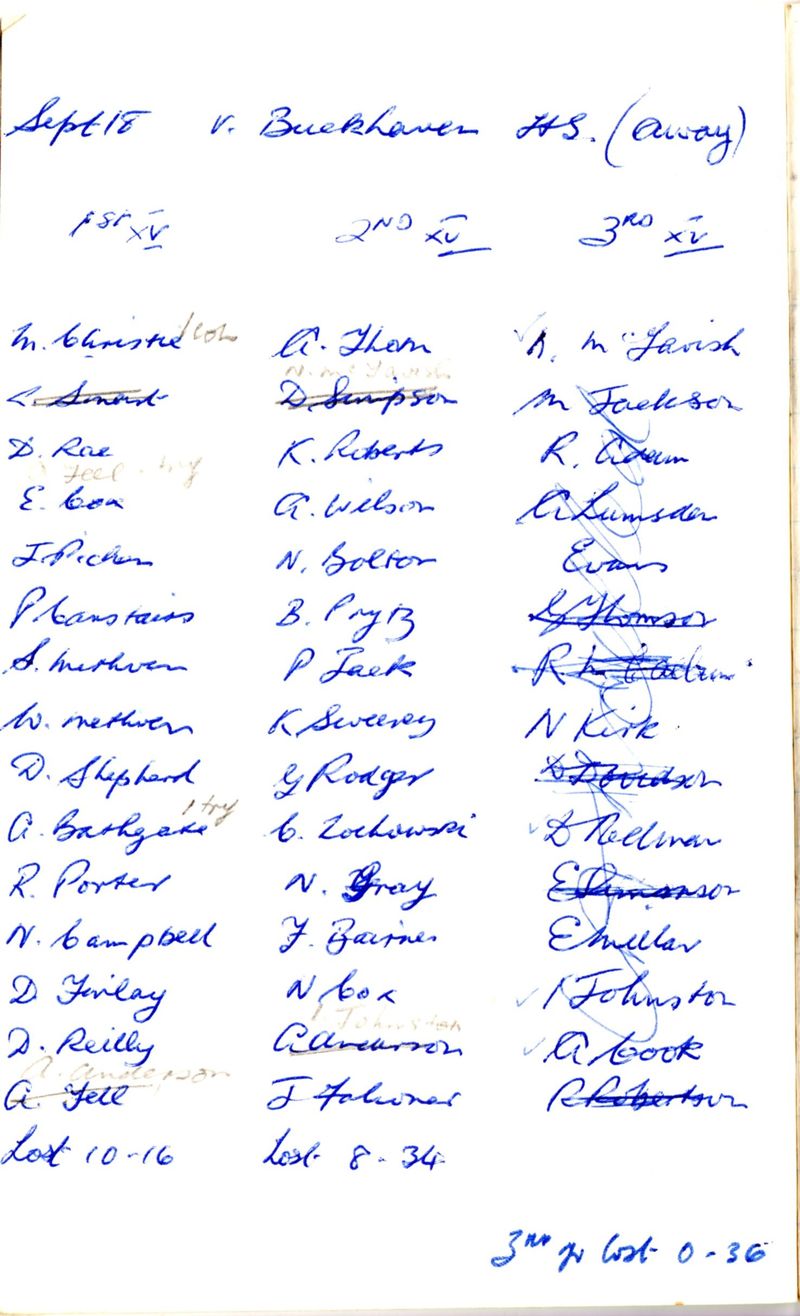 Sept 18 v. Buckhaven H.S. (away)
1ST XV 2ND XV 3RD XV
M. Christie 1 con A. Thom N. McTavish
N. McTavish
L. Smart D. Simpson M Jackson
D. Rae K. Roberts R. Adam
A Fell - try
E. Cox A. Wilson A Lumsden
J. N. Bolton Evans
P Carstairs B. Prytz Thomson
S. Methven P Jack R
W. Methven K Sweeney N Kirk
D. Shepherd G Rodger D Davidson
A. Bathgate 1 try C. Zochowski D Redman
R. Porter N. Gray E
N. Campbell J. Bairner E Millar
D Finlay N Cox I Johnston
I Johnston
D. Reilly A Anderson A Cook
A. Anderson
A. Fell J Falconer R Robertson
Lost 10-16 Lost 8-34
3rd yr lost 0-36